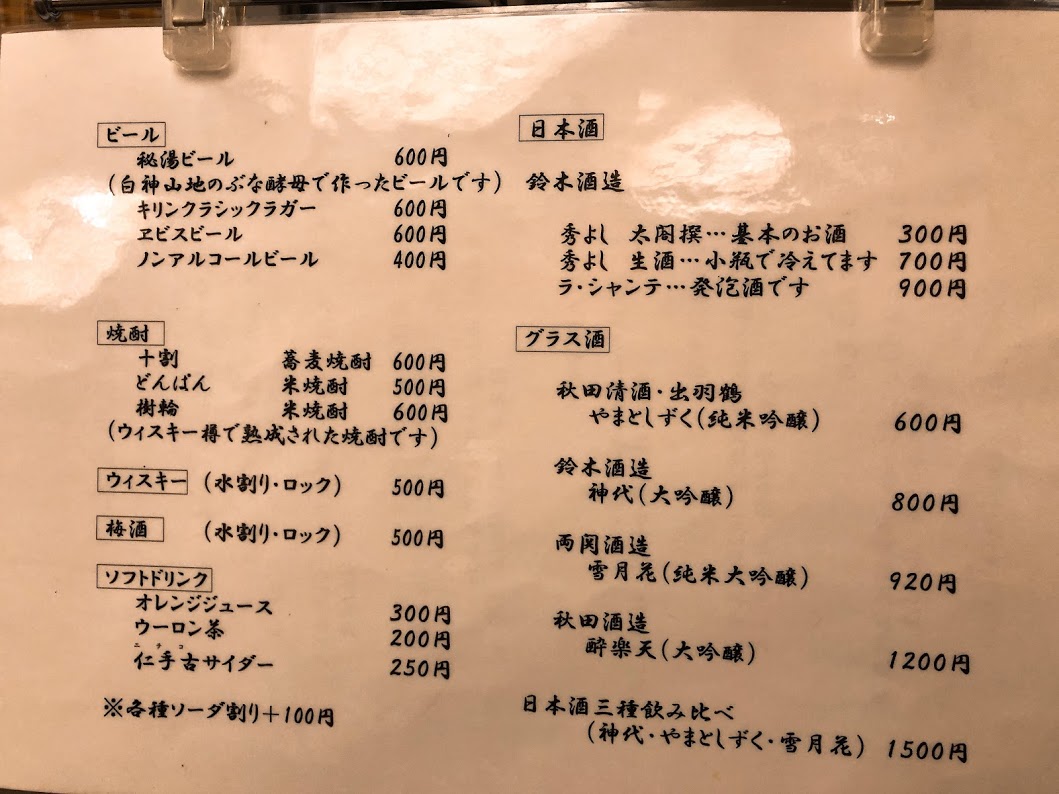 ビール
秘湯ビール 600円
(白神山地のぶな酵母で作ったビールです)
キリンクラシックラガー 600円
ヱビスビール 600円
ノンアルコールビール 400円
焼酎
十割 蕎麦焼酎 600円
どんぱん 米焼酎 500円
樹輪 米焼酎 600円
(ウィスキー樽で熟成された焼酎です)
ウィスキー (水割り・ロック) 500円
梅酒 (水割り・ロック) 500円
ソフトドリンク
オレンジジュース 300円
ウーロン茶 200円
ニテコ
仁手古サイダー 250円
※各種ソーダ割り+100円
日本酒
鈴木酒造
秀よし 太閤撰…基本のお酒 300円
秀よし 生酒…小瓶で冷えてます 700円
ラ・シャンテ…発泡酒です 900円
グラス酒
秋田清酒・出羽鶴
やまとしずく(純米吟醸) 600円
鈴木酒造
神代(大吟醸) 800円
両関酒造
雪月花(純米大吟醸) 920円
秋田酒造
酔楽天(大吟醸) 1200円
日本酒三種飲み比べ
(神代・やまとしずく・雪月花) 1500円